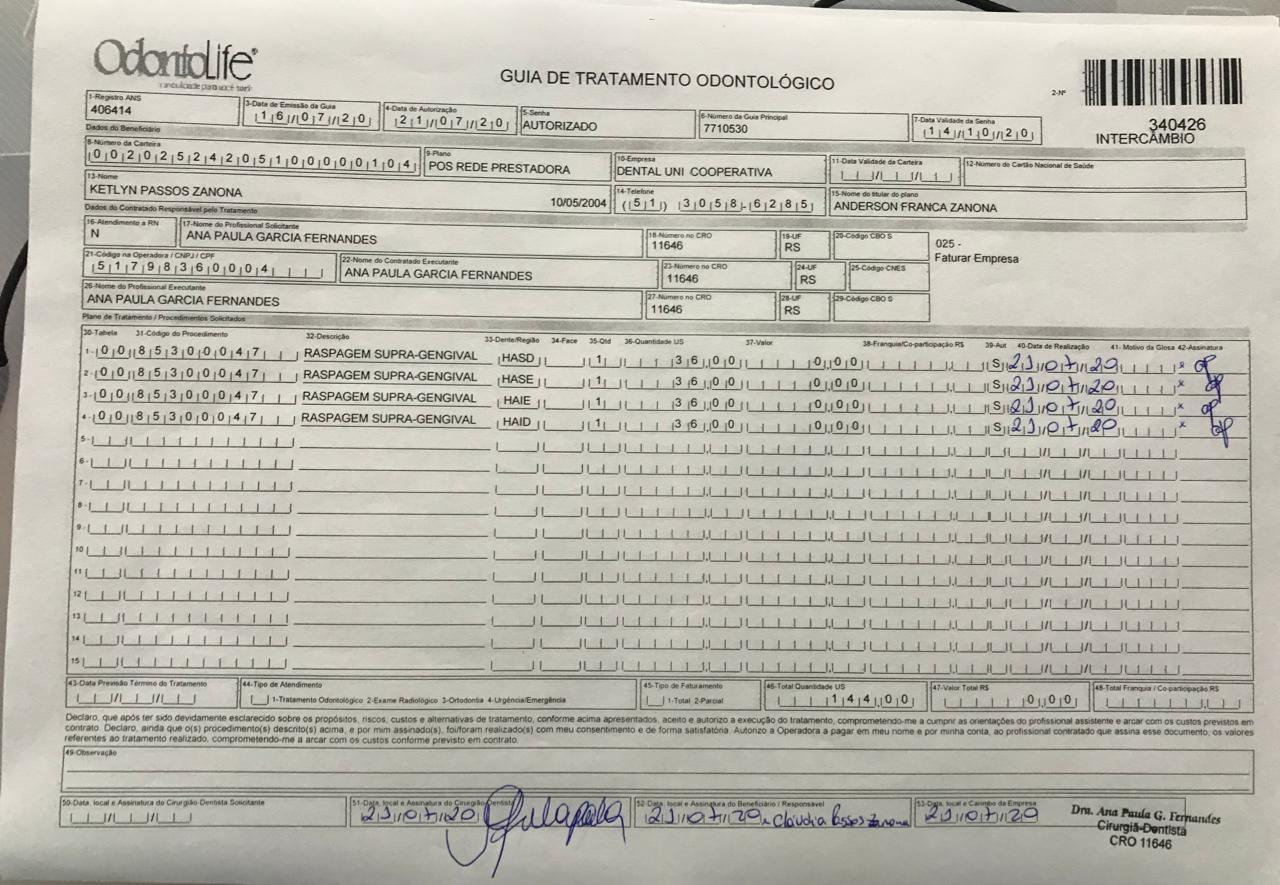 OdontoLife®
GUIA DE TRATAMENTO ODONTOLÓGICO
2-Nº
340426
INTERCÂMBIO
1-Registro ANS
406414
3-Data de Emissão da Guia
16/07/20
4-Data de Autorização
21/07/20
5-Senha
AUTORIZADO
6-Número da Guia Principal
7710530
7-Data Validade da Senha
14/10/20
Dados do Beneficiário
8-Número da Carteira
00202524205100000104
9-Plano
POS REDE PRESTADORA
10-Empresa
DENTAL UNI COOPERATIVA
11-Data Validade da Carteira
12-Número do Cartão Nacional de Saúde
13-Nome
KETLYN PASSOS ZANONA 10/05/2004
14-Telefone
(51) 3058-6285
15-Nome do titular do plano
ANDERSON FRANCA ZANONA
Dados do Contratado Responsável pelo Tratamento
16-Atendimento a RN
N
17-Nome do Profissional Solicitante
ANA PAULA GARCIA FERNANDES
18-Número no CRO
11646
19-UF
RS
20-Código CBO S
025 -
Faturar Empresa
21-Código na Operadora / CNPJ / CPF
51798360004
22-Nome do Contratado Executante
ANA PAULA GARCIA FERNANDES
23-Número no CRO
11646
24-UF
RS
25-Código CNES
26-Nome do Profissional Executante
ANA PAULA GARCIA FERNANDES
27-Número no CRO
11646
28-UF
RS
29-Código CBO S
Plano de Tratamento / Procedimentos Solicitados
30-Tabela 31-Código do Procedimento 32-Descrição 33-Dente/Região 34-Face 35-Qtd 36-Quantidade US 37-Valor 38-Franquia/Co-participação R$ 39-Aut 40-Data de Realização 41- Motivo da Glosa 42-Assinatura
1- 00 85300047 RASPAGEM SUPRA-GENGIVAL HASD 1 36,00 0,00 S 21/07/20 x
2- 00 85300047 RASPAGEM SUPRA-GENGIVAL HASE 1 36,00 0,00 S 21/07/20 x
3- 00 85300047 RASPAGEM SUPRA-GENGIVAL HAIE 1 36,00 0,00 S 21/07/20 x
4- 00 85300047 RASPAGEM SUPRA-GENGIVAL HAID 1 36,00 0,00 S 21/07/20 x
5-
6-
7-
8-
9-
10
11
12
13
14
15
43-Data Previsão Término do Tratamento
44-Tipo de Atendimento
1-Tratamento Odontológico 2-Exame Radiológico 3-Ortodontia 4-Urgência/Emergência
45-Tipo de Faturamento
1-Total 2-Parcial
46-Total Quantidade US
144,00
47-Valor Total R$
0,00
48-Total Franquia / Co-participação R$
Declaro, que após ter sido devidamente esclarecido sobre os propósitos, riscos, custos e alternativas de tratamento, conforme acima apresentados, aceito e autorizo a execução do tratamento, comprometendo-me a cumprir as orientações do profissional assistente e arcar com os custos previstos em
contrato. Declaro, ainda que o(s) procedimento(s) descrito(s) acima, e por mim assinado(s), foi/foram realizado(s) com meu consentimento e de forma satisfatória. Autorizo a Operadora a pagar em meu nome e por minha conta, ao profissional contratado que assina esse documento, os valores
referentes ao tratamento realizado, comprometendo-me a arcar com os custos conforme previsto em contrato.
49-Observação
50-Data, local e Assinatura do Cirurgião-Dentista Solicitante
51-Data, local e Assinatura do Cirurgião-Dentista
21/07/20
52-Data, local e Assinatura do Beneficiário / Responsável
21/07/20 x Cláudia Passos Zanona
53-Data, local e Carimbo da Empresa
21/07/20
Dra. Ana Paula G. Fernandes
Cirurgiã-Dentista
CRO 11646